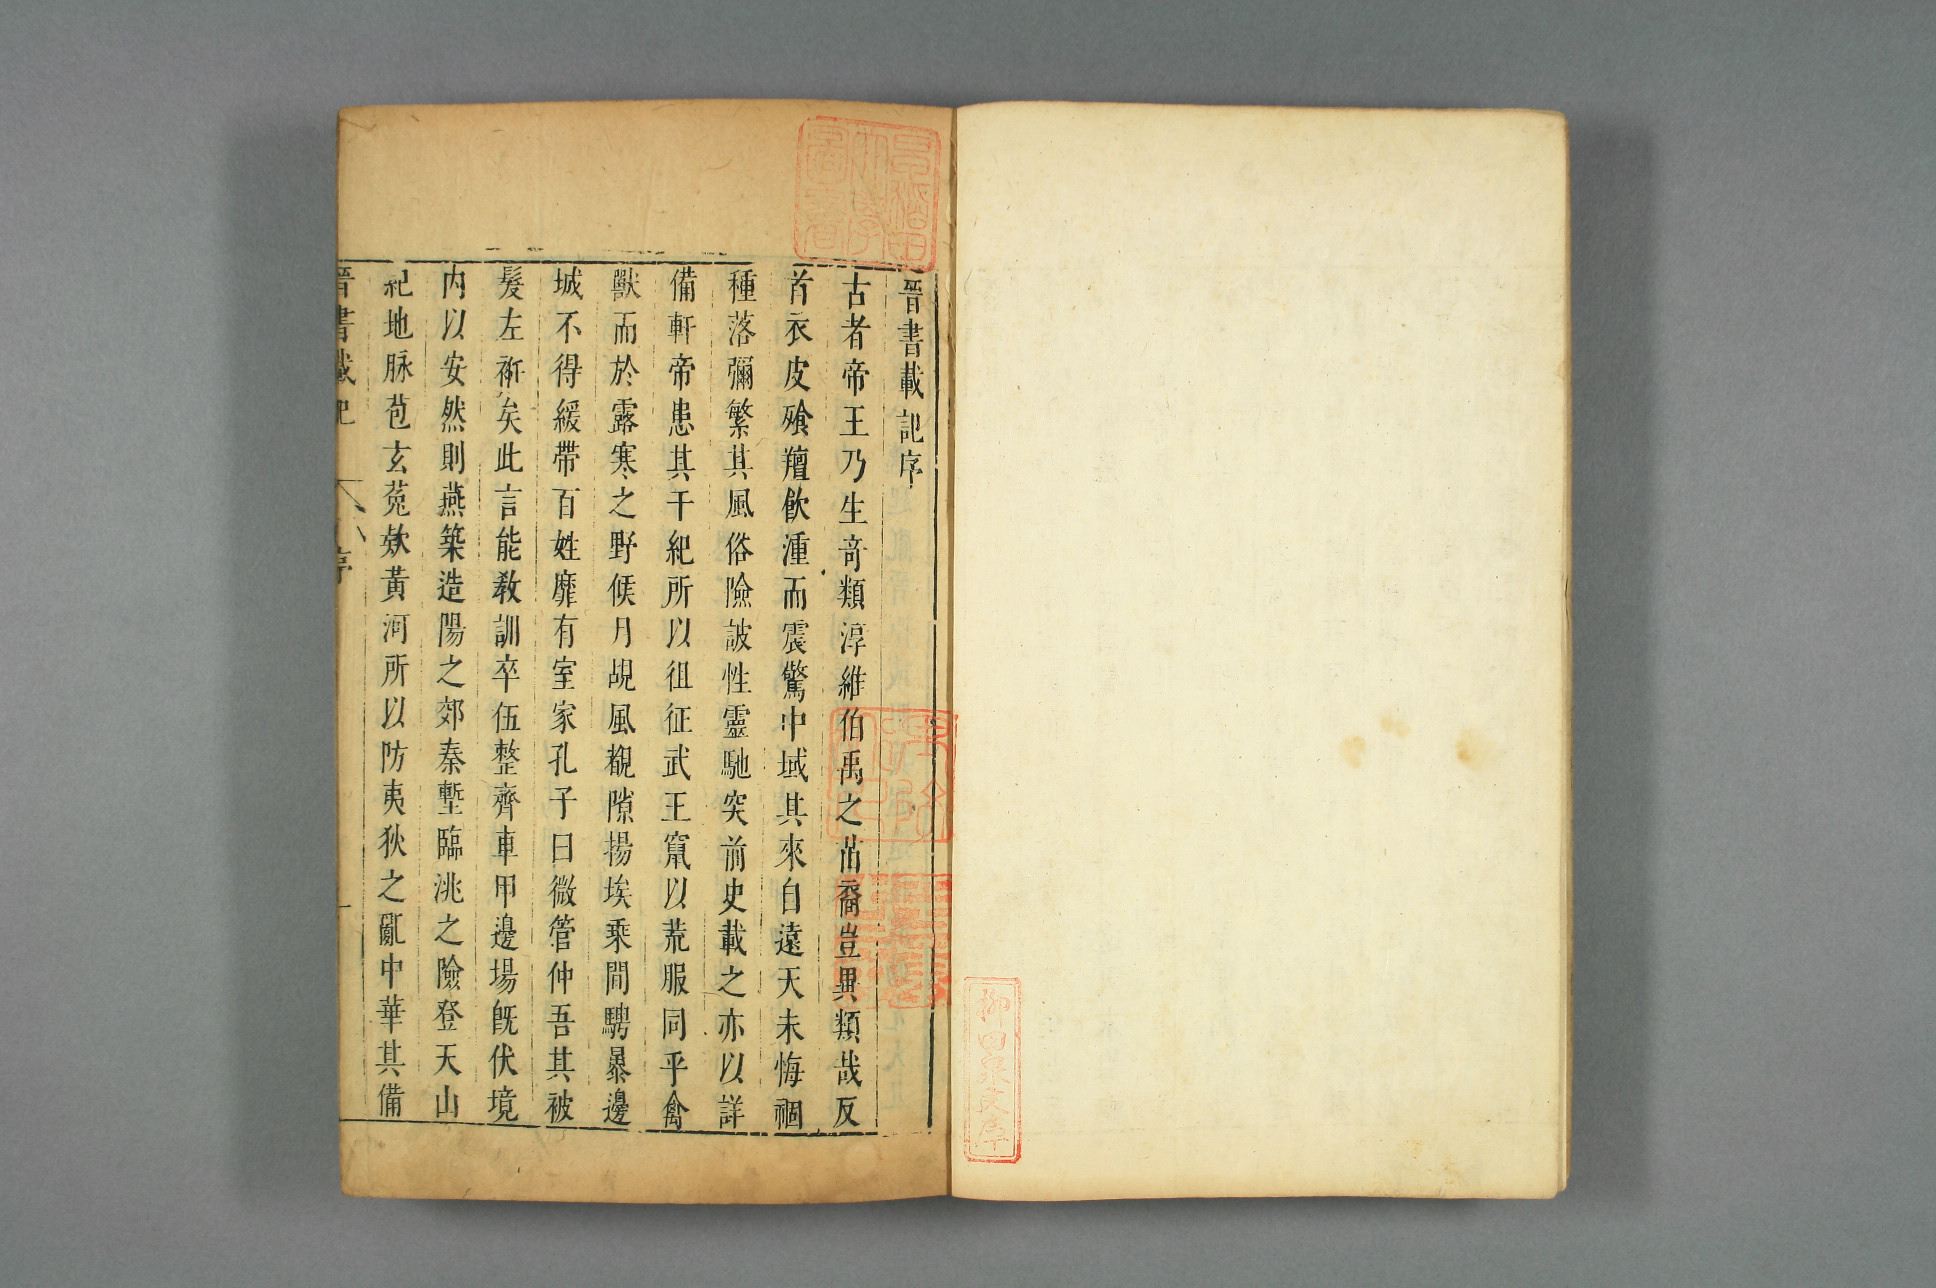 柳田泉文庫
早稲田大學圖書
晉書載記序
古者帝王乃生竒類淳維伯禹之苗裔豈異類哉反
首衣皮飱羶飲湩而震驚中域其來自遠天未悔禍
種落彌繁其風俗險詖性靈馳突前史載之亦以詳
備軒帝患其干紀所以徂征武王竄以荒服同乎禽
獸而於露寒之野候月覘風覩隙揚埃乘間騁暴邊
城不得緩帶百姓靡有室家孔子曰微管仲吾其被
髮左衽矣此言能教訓卒伍整齊車甲邊場旣伏境
内以安然則燕築造陽之郊秦塹臨洮之險登天山
紀地脉苞玄菟欵黃河所以防夷狄之亂中華其備
晉書載記
序